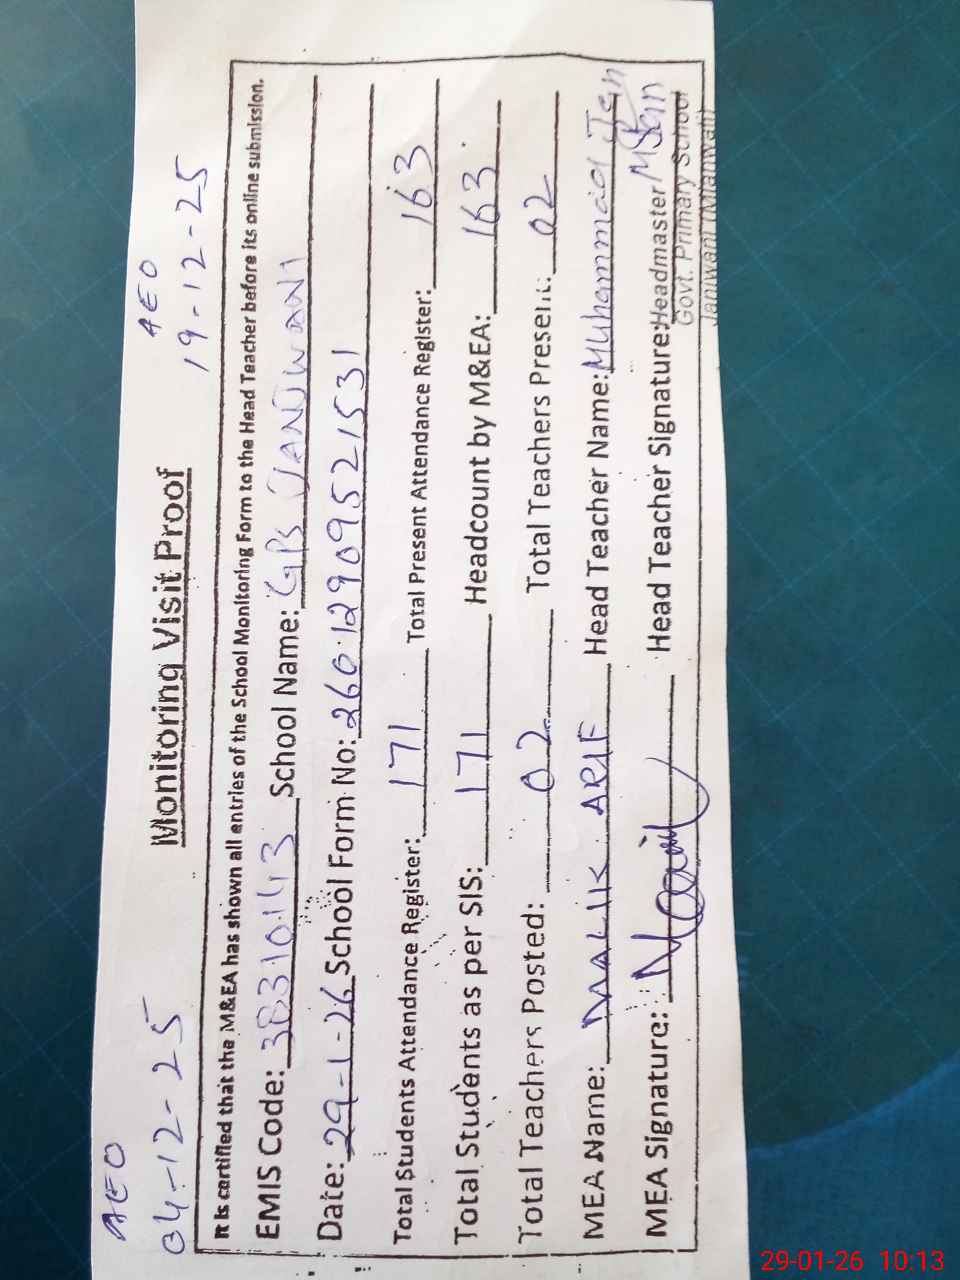 AEO
04-12-25
AEO
19-12-25
Monitoring Visit Proof
It is certified that the M&EA has shown all entries of the School Monitoring Form to the Head Teacher before its online submission.
EMIS Code: 38310143 School Name: GPS JANUWANI
Date: 29-1-26 School Form No: 26012909521531
Total Students Attendance Register: 171 Total Present Attendance Register: 163
Total Students as per SIS: 171 Headcount by M&EA: 163
Total Teachers Posted: 02 Total Teachers Present: 02
MEA Name: MALIK ARIF Head Teacher Name: Muhammad Jan
MEA Signature: Head Teacher Signature: MJan
Headmaster
Govt. Primary School
Janiwani (Mianwali)
29-01-26 10:13